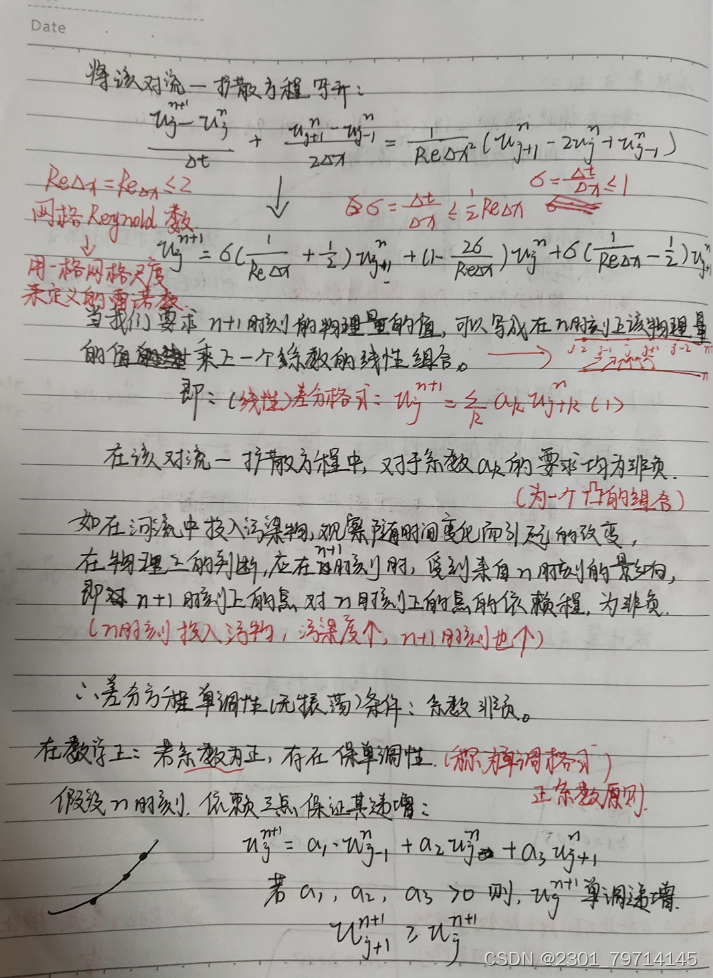 Date
将该对流一扩散方程写开：
(u_j^{n+1} - u_j^n)/Δt + (u_{j+1}^n - u_{j-1}^n)/2Δx = 1/(ReΔx²) (u_{j+1}^n - 2u_j^n + u_{j-1}^n)
ReΔx = Re_{Δx} ≤ 2
σ = Δt/Δx ≤ 1
网格Reynold数
σ = Δt/Δx ≤ ½ReΔx
u_j^{n+1} = σ(1/(ReΔx) + ½)u_{j-1}^n + (1 - 2σ/(ReΔx))u_j^n + σ(1/(ReΔx) - ½)u_{j+1}^n
用一格网格尺度
来定义的雷诺数
当我们要求n+1时刻的物理量的值，可以写成在n时刻上该物理量
的值乘上一个系数的线性组合。
即：(线性)差分格式：u_j^{n+1} = Σ_k a_k u_{j+k}^n (1)
在该对流一扩散方程中，对于系数a_k的要求均为非负.
(为一个凸的组合)
如在河流中投入污染物，观察随时间变化而引起的改变，
在物理上的判断，应在n+1时刻时，受到来自n时刻的影响，
即n+1时刻上的点对n时刻上的点的依赖程，为非负.
(n时刻投入污物，污深度↑，n+1时刻也↑)
∴差分方程单调性(无振荡)条件：系数非负。
在数学上：若系数为正，存在保单调性.(称为单调格式)
正系数原则.
假设n时刻.依赖三点保证其递增：
u_j^{n+1} = a₁·u_{j-1}^n + a₂u_j^n + a₃u_{j+1}^n
若a₁，a₂，a₃>0则，u_j^{n+1}单调递增.
u_{j+1}^{n+1} ≥ u_j^{n+1}
CSDN @2301_79714145